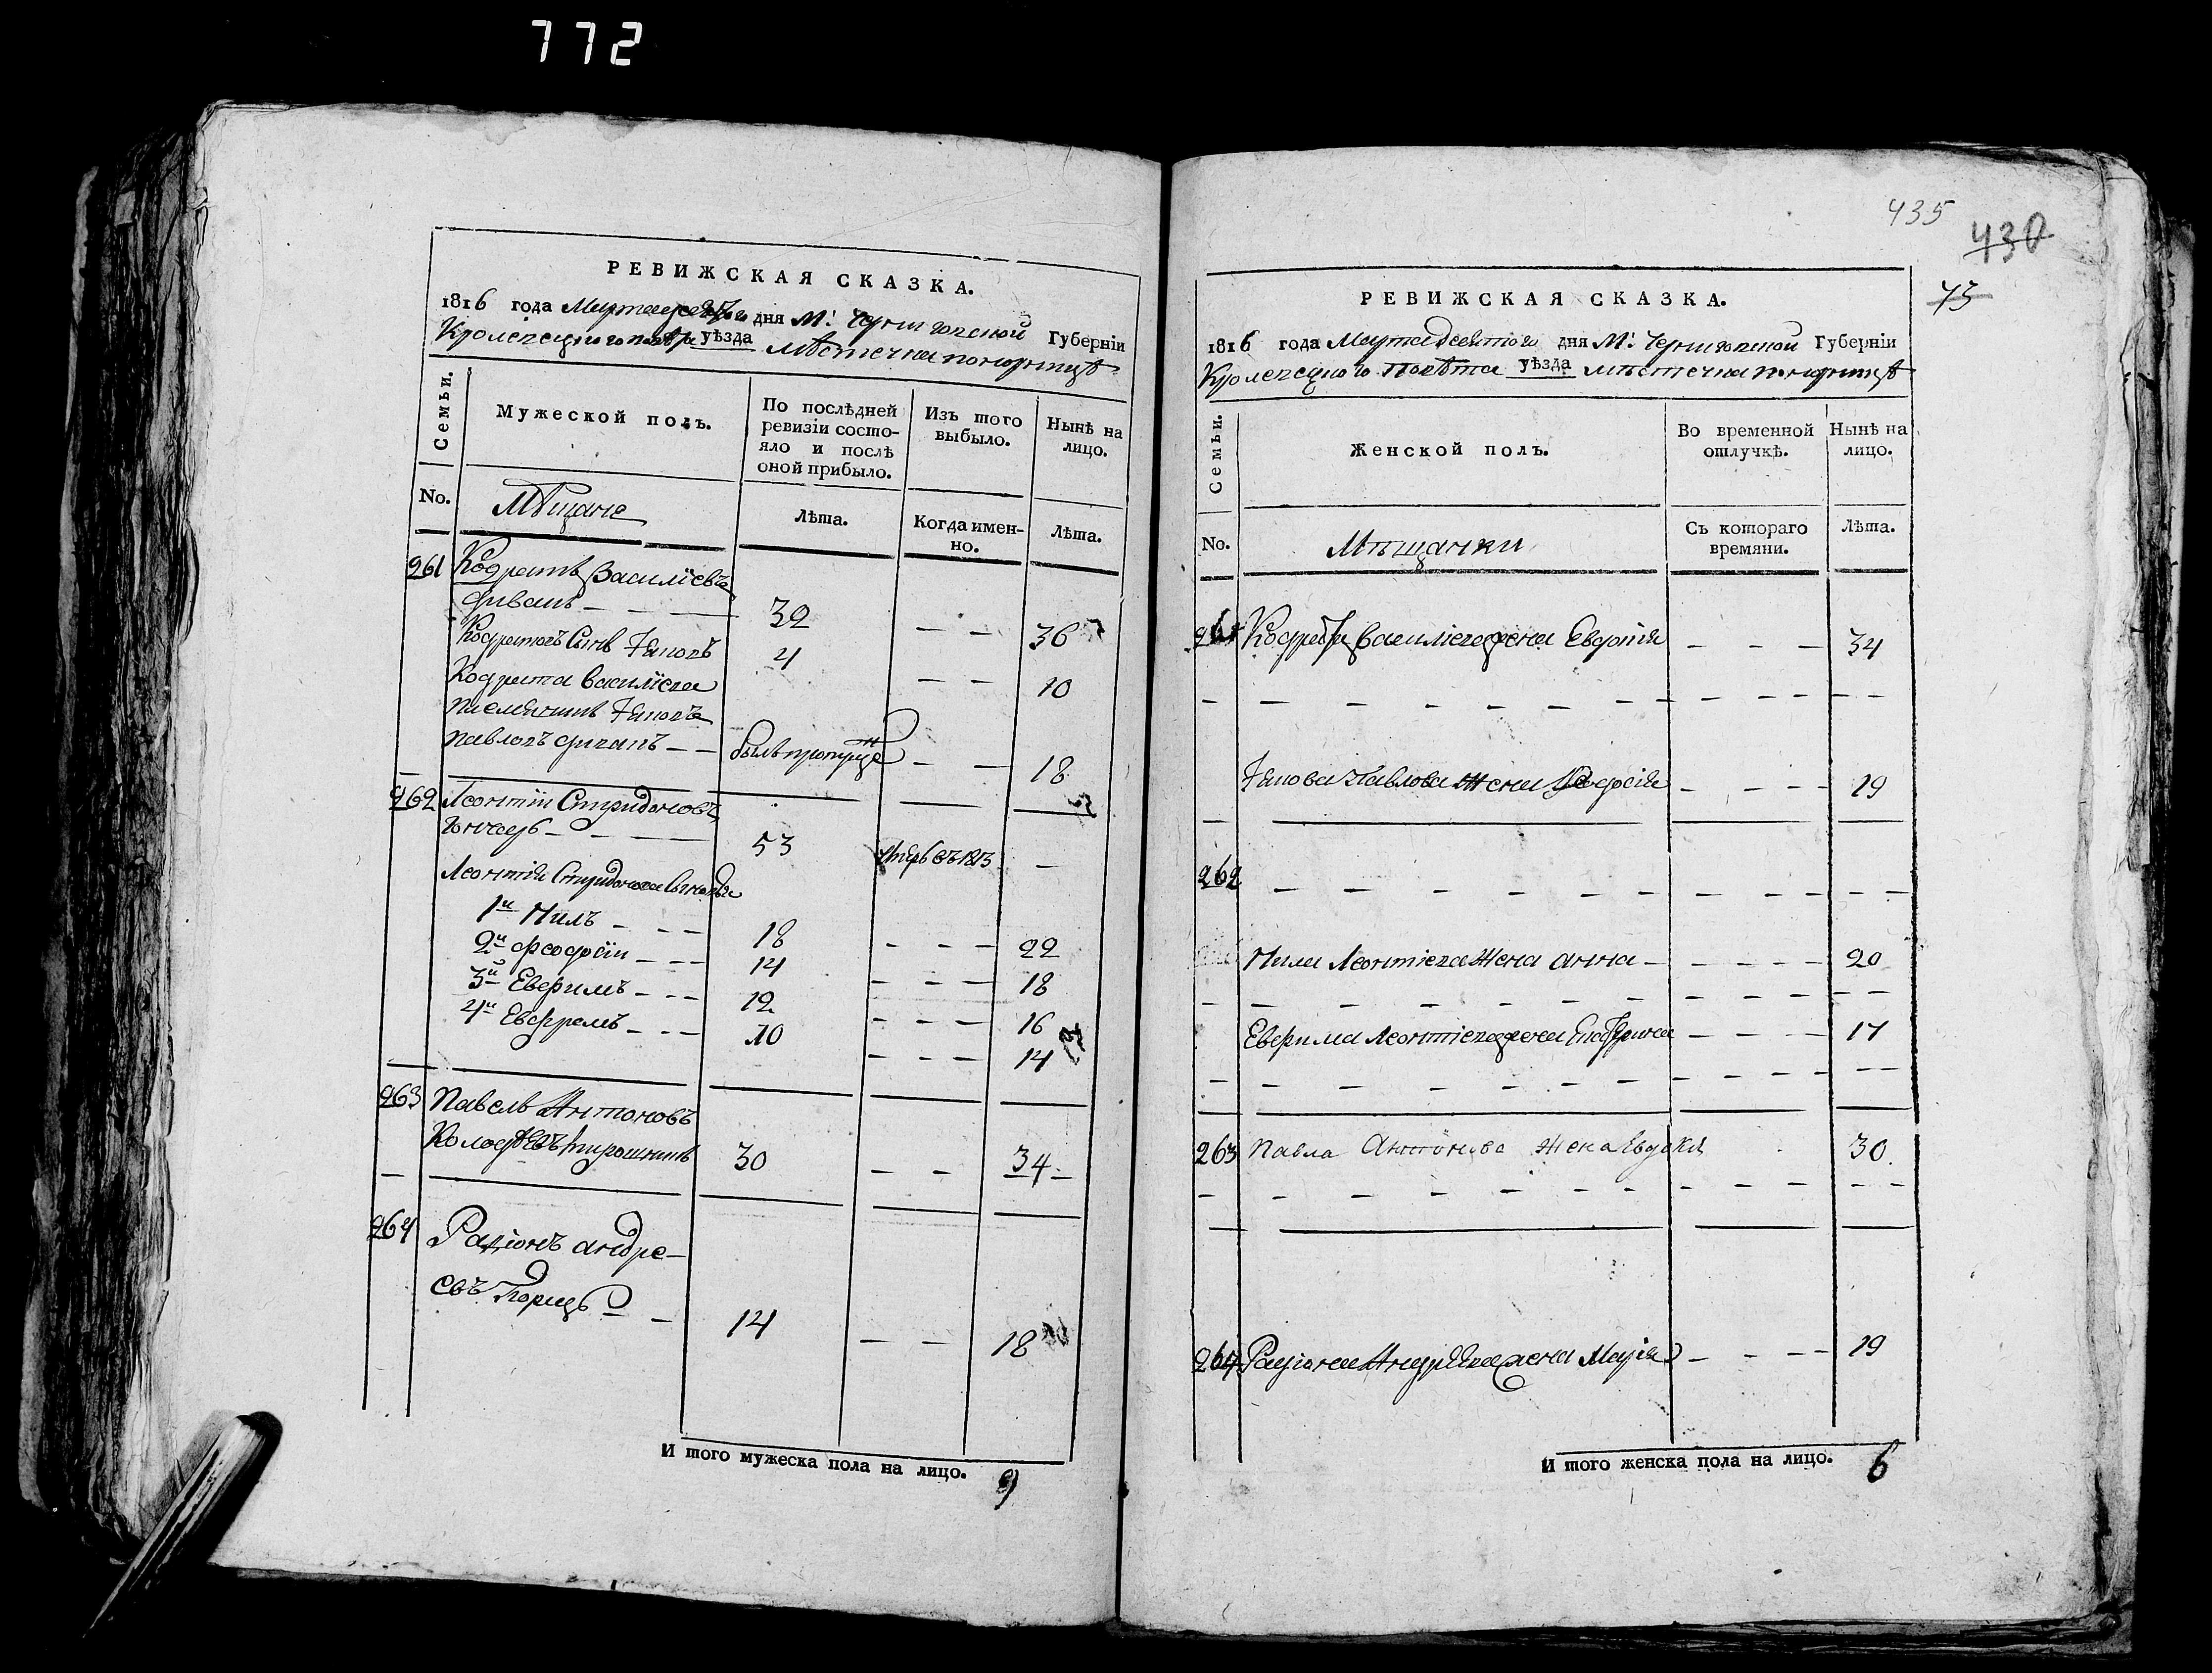 772
РЕВИЖСКАЯ СКАЗКА.
1816 года Марта дня М: Черниговской Губернiи
Кролевецкого повѣта уѣзда мѣстечка понорницѣ
Семьи.
Мужеской полъ.
По послѣдней ревизiи состояло и послѣ оной прибыло.
Изъ того выбыло.
Нынѣ на лицо.
No.
Мѣщане
Лѣта.
Когда именно.
Лѣта.
261 Кодратъ Василiевъ
32 — — 36
Кодратовъ Сынъ Яковъ 4 — — 10
Кодрата Василiева
племянникъ Яковъ
Павловъ — — былъ — — 18
262 Леонтiи Спиридоновъ
53 —
Леонтiя Спиридонова Сыновья
1й Нилъ — — — 18 — — — 22
2й Феодосiи — — — 14 — — — 18
3й Евфимъ — — — 12 — — — 16
4й Евфремъ — — — 10 — — — 14
263 Павелъ Антоновъ
30 — — 34
264 Радiонъ андре-
евъ
14 — — 18
И того мужеска пола на лицо. 9
435
430
73
РЕВИЖСКАЯ СКАЗКА.
1816 года Марта девятого дня М: Черниговской Губернiи
Кролевецкого Повѣта уѣзда мѣстечка понорницѣ
Семьи.
Женской полъ.
Во временной отлучкѣ.
Нынѣ на лицо.
No.
Мѣщанки
Съ котораго времяни.
Лѣта.
261 Кодрата Василiева жена Евдокiя — — — 34
Якова Павлова жена — — — — 19
262
Нила Леонтiева жена анна — — — — — 20
Евфима Леонтiева жена — — — — 17
263 Павла Антонова жена Евдокiя 30.
264 Радiона Андрѣева жена Марiя — — — — 19
И того женска пола на лицо. 6